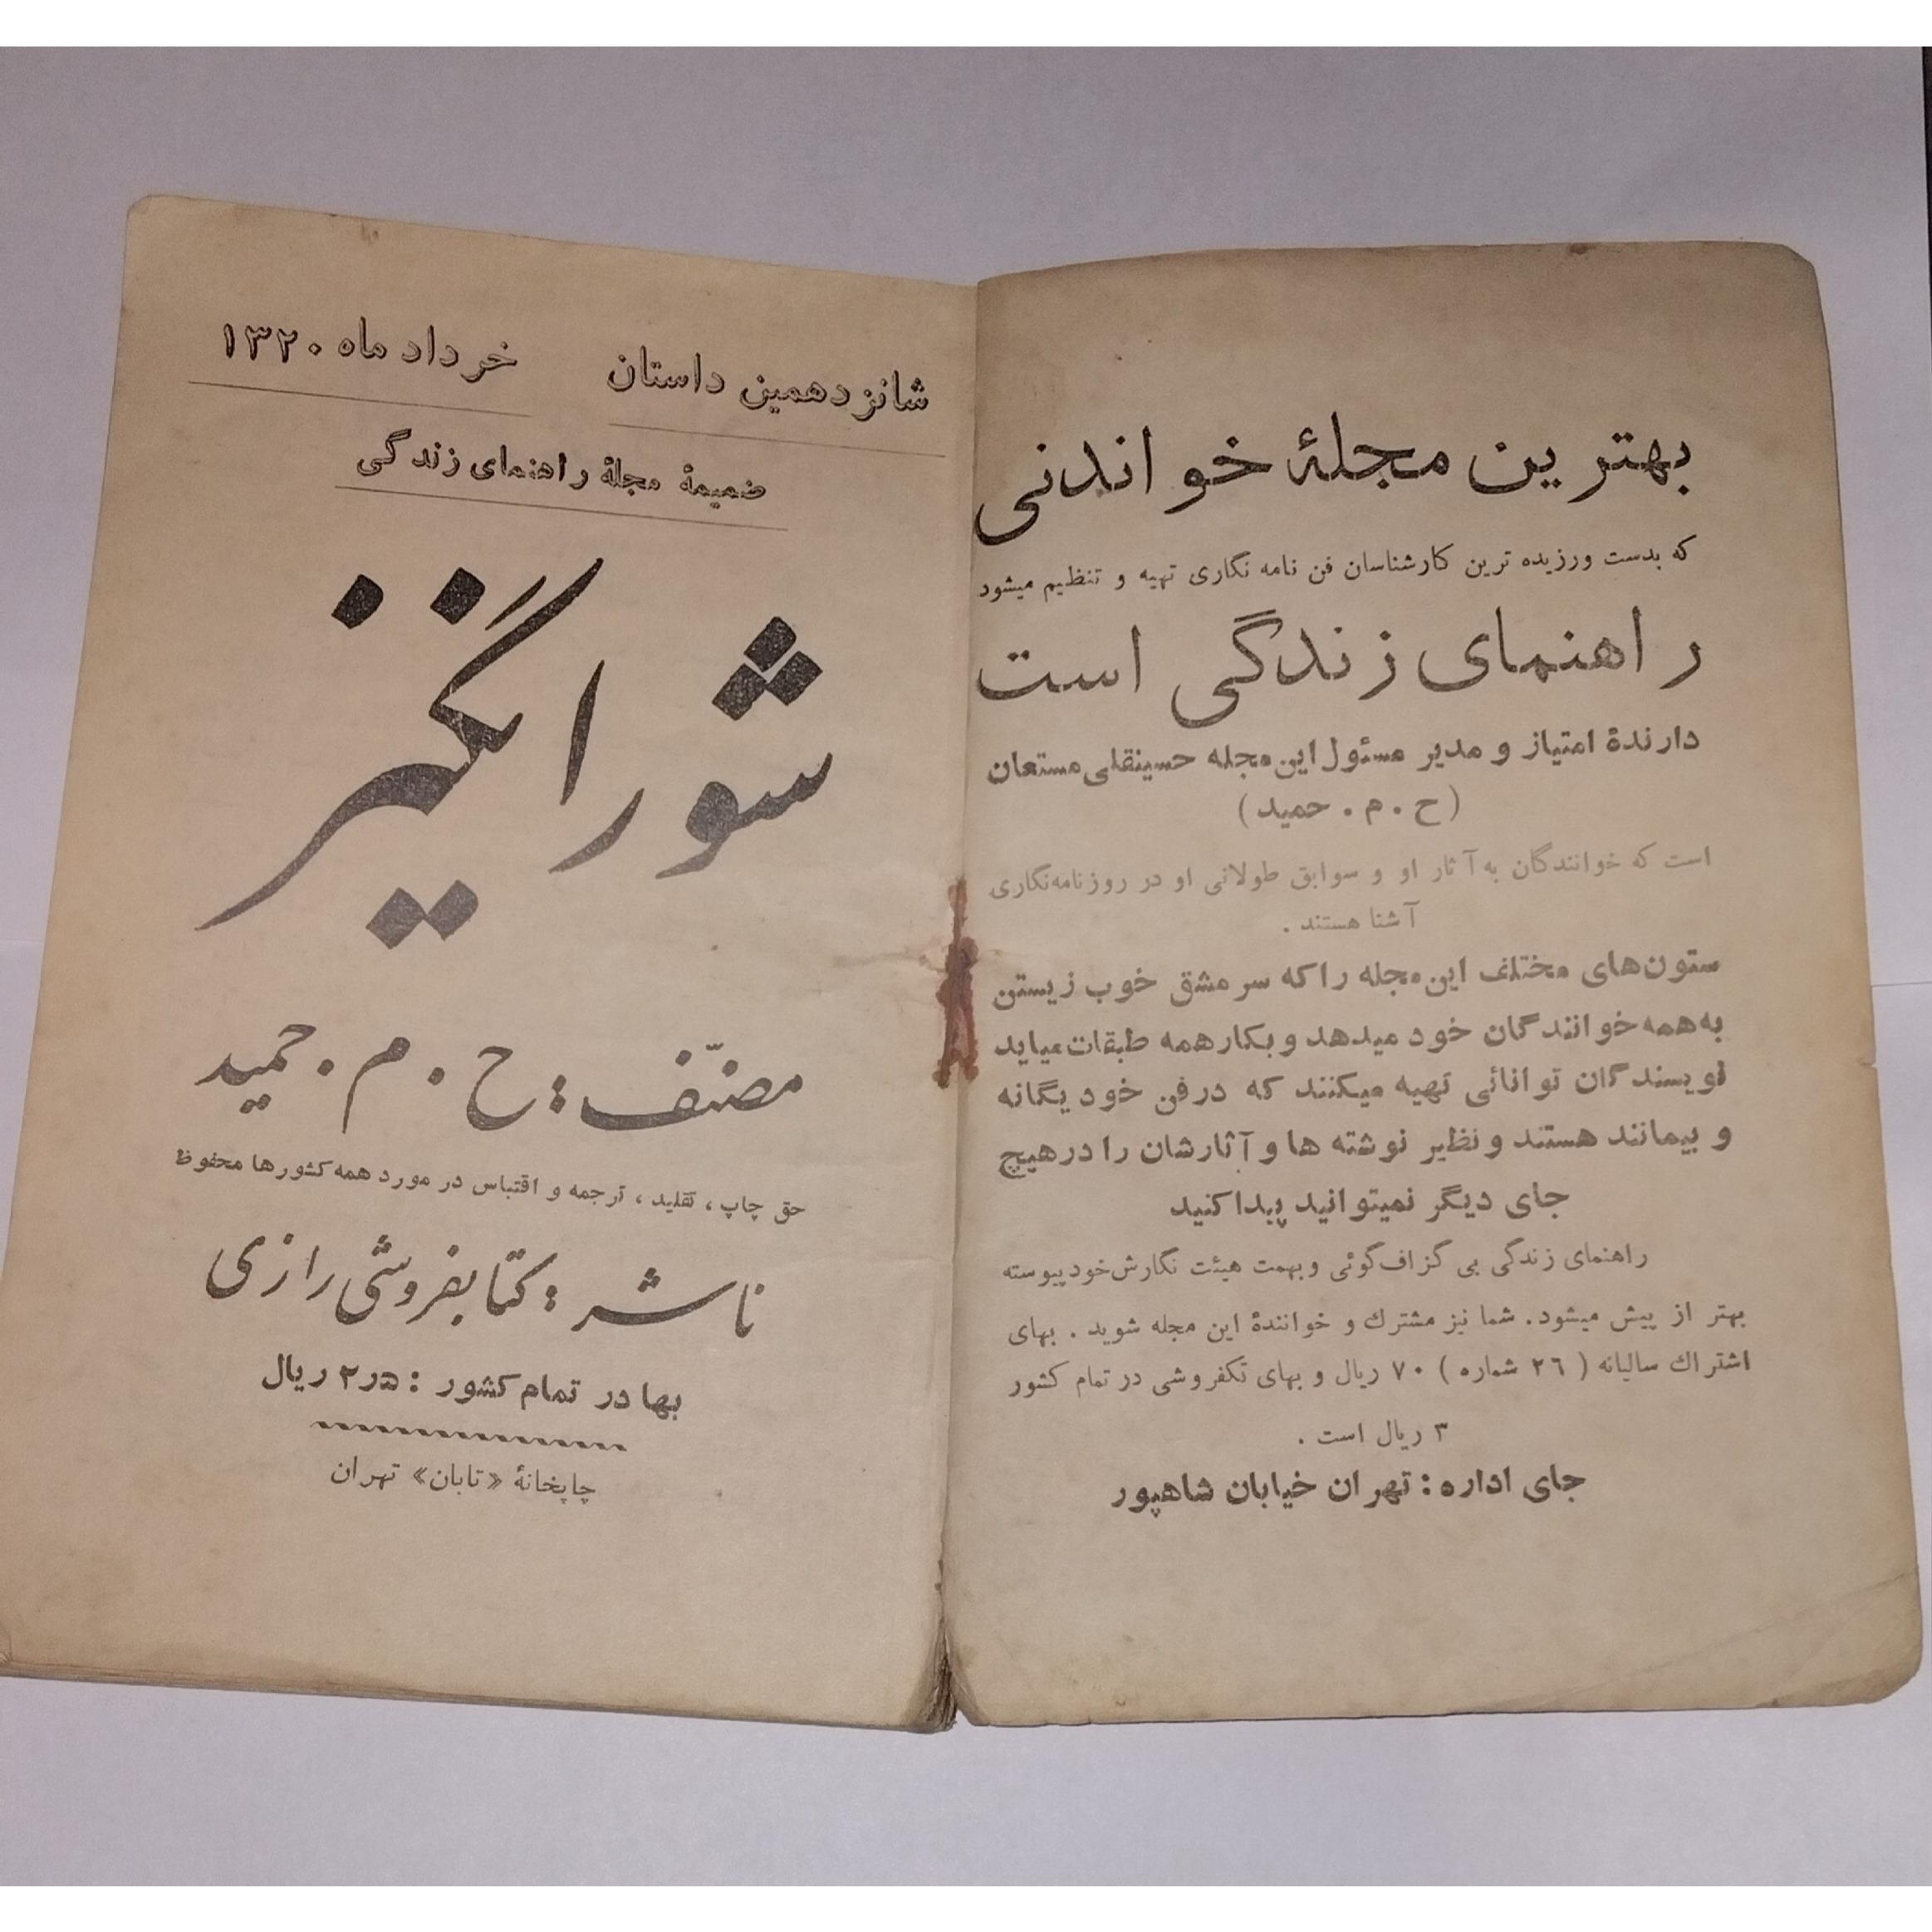 بهترین مجلهٔ خواندنی
که بدست ورزیده ترین کارشناسان فن نامه نگاری تهیه و تنظیم میشود
راهنمای زندگی است
دارندهٔ امتیاز و مدیر مسئول این مجله حسینقلی مستعان
(ح . م . حمید)
است که خوانندگان به آثار او و سوابق طولانی او در روزنامه‌نگاری
آشنا هستند .
ستون‌های مختلف این مجله را که سرمشق خوب زیستن
به همه خوانندگان خود میدهد و بکار همه طبقات میاید
نویسندگان توانائی تهیه میکنند که در فن خود یگانه
و بیمانند هستند و نظیر نوشته ها و آثارشان را در هیچ
جای دیگر نمیتوانید پیدا کنید
راهنمای زندگی بی گزاف‌گوئی و بهمت هیئت نگارش خود پیوسته
بهتر از پیش میشود. شما نیز مشترك و خوانندهٔ این مجله شوید . بهای
اشتراك سالیانه ( ٢٦ شماره ) ٧٠ ریال و بهای تکفروشی در تمام کشور
٣ ریال است .
جای اداره : تهران خیابان شاهپور
شانزدهمین داستان خرداد ماه ١٣٢٠
ضمیمهٔ مجلهٔ راهنمای زندگی
شورانگیز
مصنّف : ح . م . حمید
حق چاپ ، تقلید ، ترجمه و اقتباس در مورد همه کشورها محفوظ
ناشر : کتابفروشی رازی
بها در تمام کشور : ٢ر٥ ریال
چاپخانهٔ «تابان» تهران